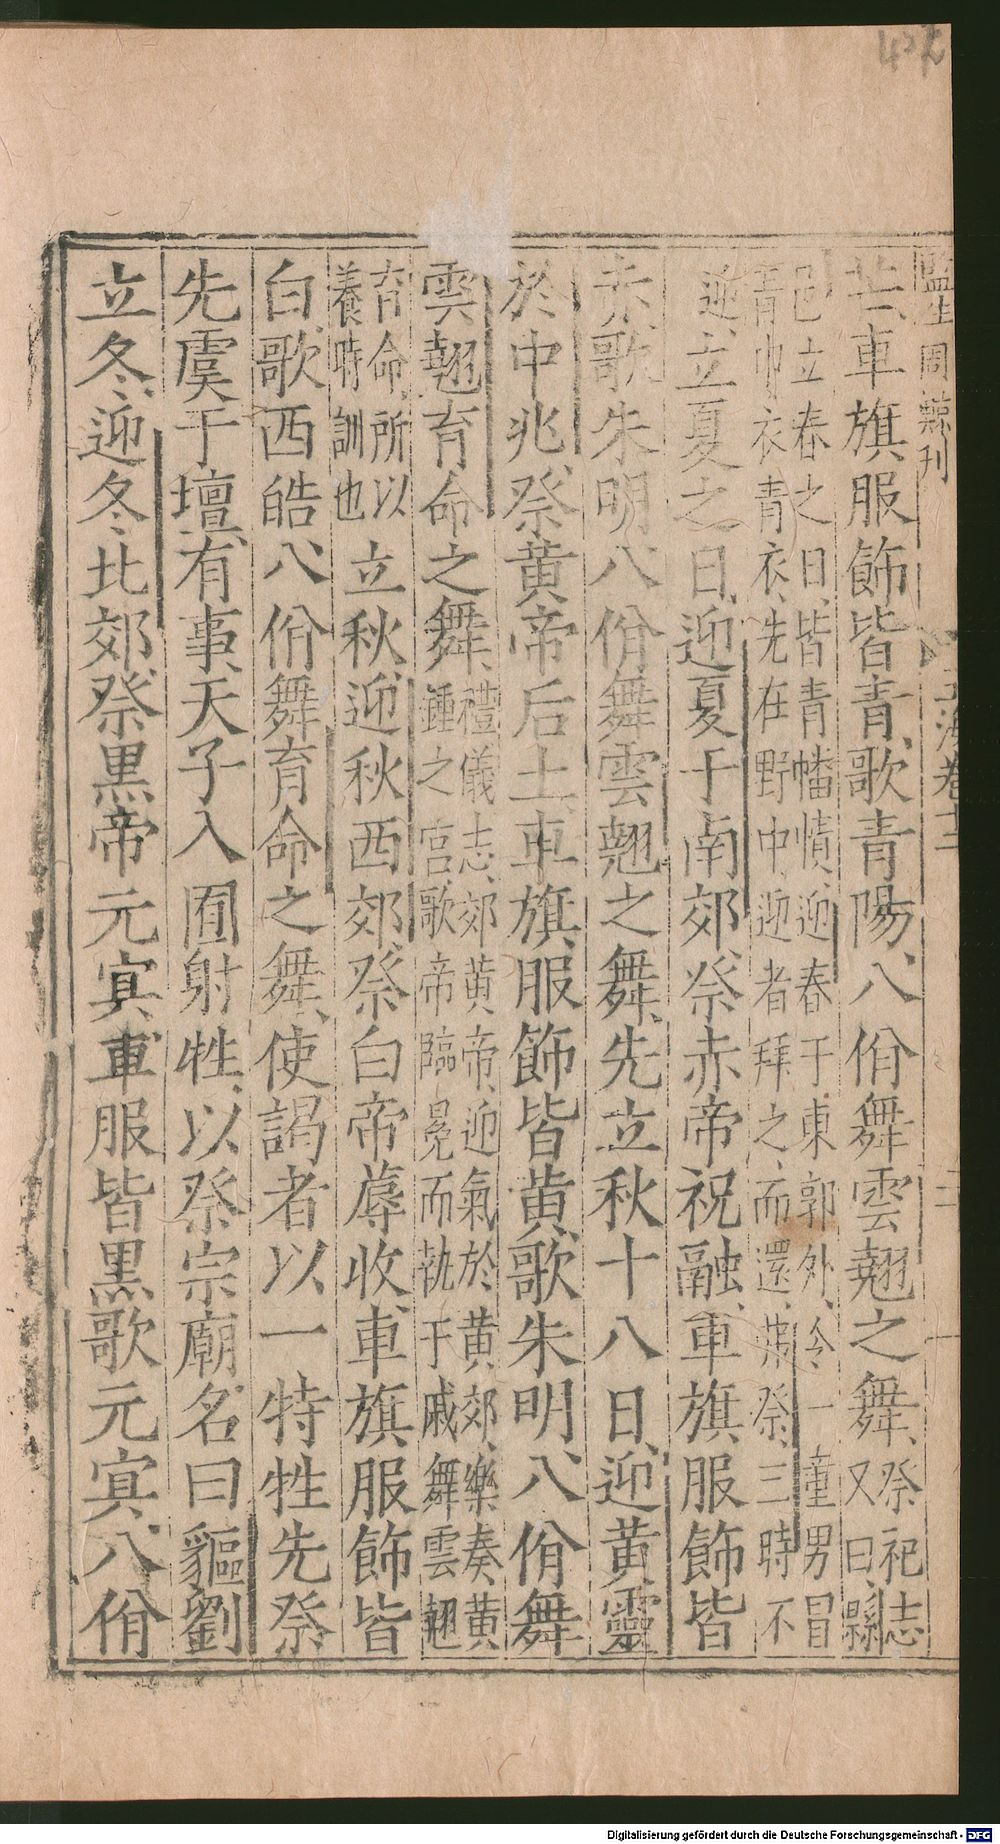 監生周蘇刊 玉海卷十二 一
芒車旗服飾皆青歌青陽八佾舞雲翹之舞祭祀志
又曰縣
邑立春之日皆青幡幘迎春于東郭外令一童男冒
青巾衣青衣先在野中迎者拜之而還弗祭三時不
迎立夏之日迎夏于南郊祭赤帝祝融車旗服飾皆
赤歌朱明八佾舞雲翹之舞先立秋十八日迎黃靈
於中兆祭黃帝后土車旗服飾皆黃歌朱明八佾舞
雲翹育命之舞禮儀志郊黃帝迎氣於黃郊樂奏黃
鍾之宮歌帝臨冕而執干戚舞雲翹
育命所以
養時訓也立秋迎秋西郊祭白帝蓐收車旗服飾皆
白歌西皓八佾舞育命之舞使謁者以一特牲先祭
先虞于壇有事天子入囿射牲以祭宗廟名曰貙劉
立冬迎冬北郊祭黑帝元冥車服皆黑歌元冥八佾
Digitalisierung gefördert durch die Deutsche Forschungsgemeinschaft - DFG